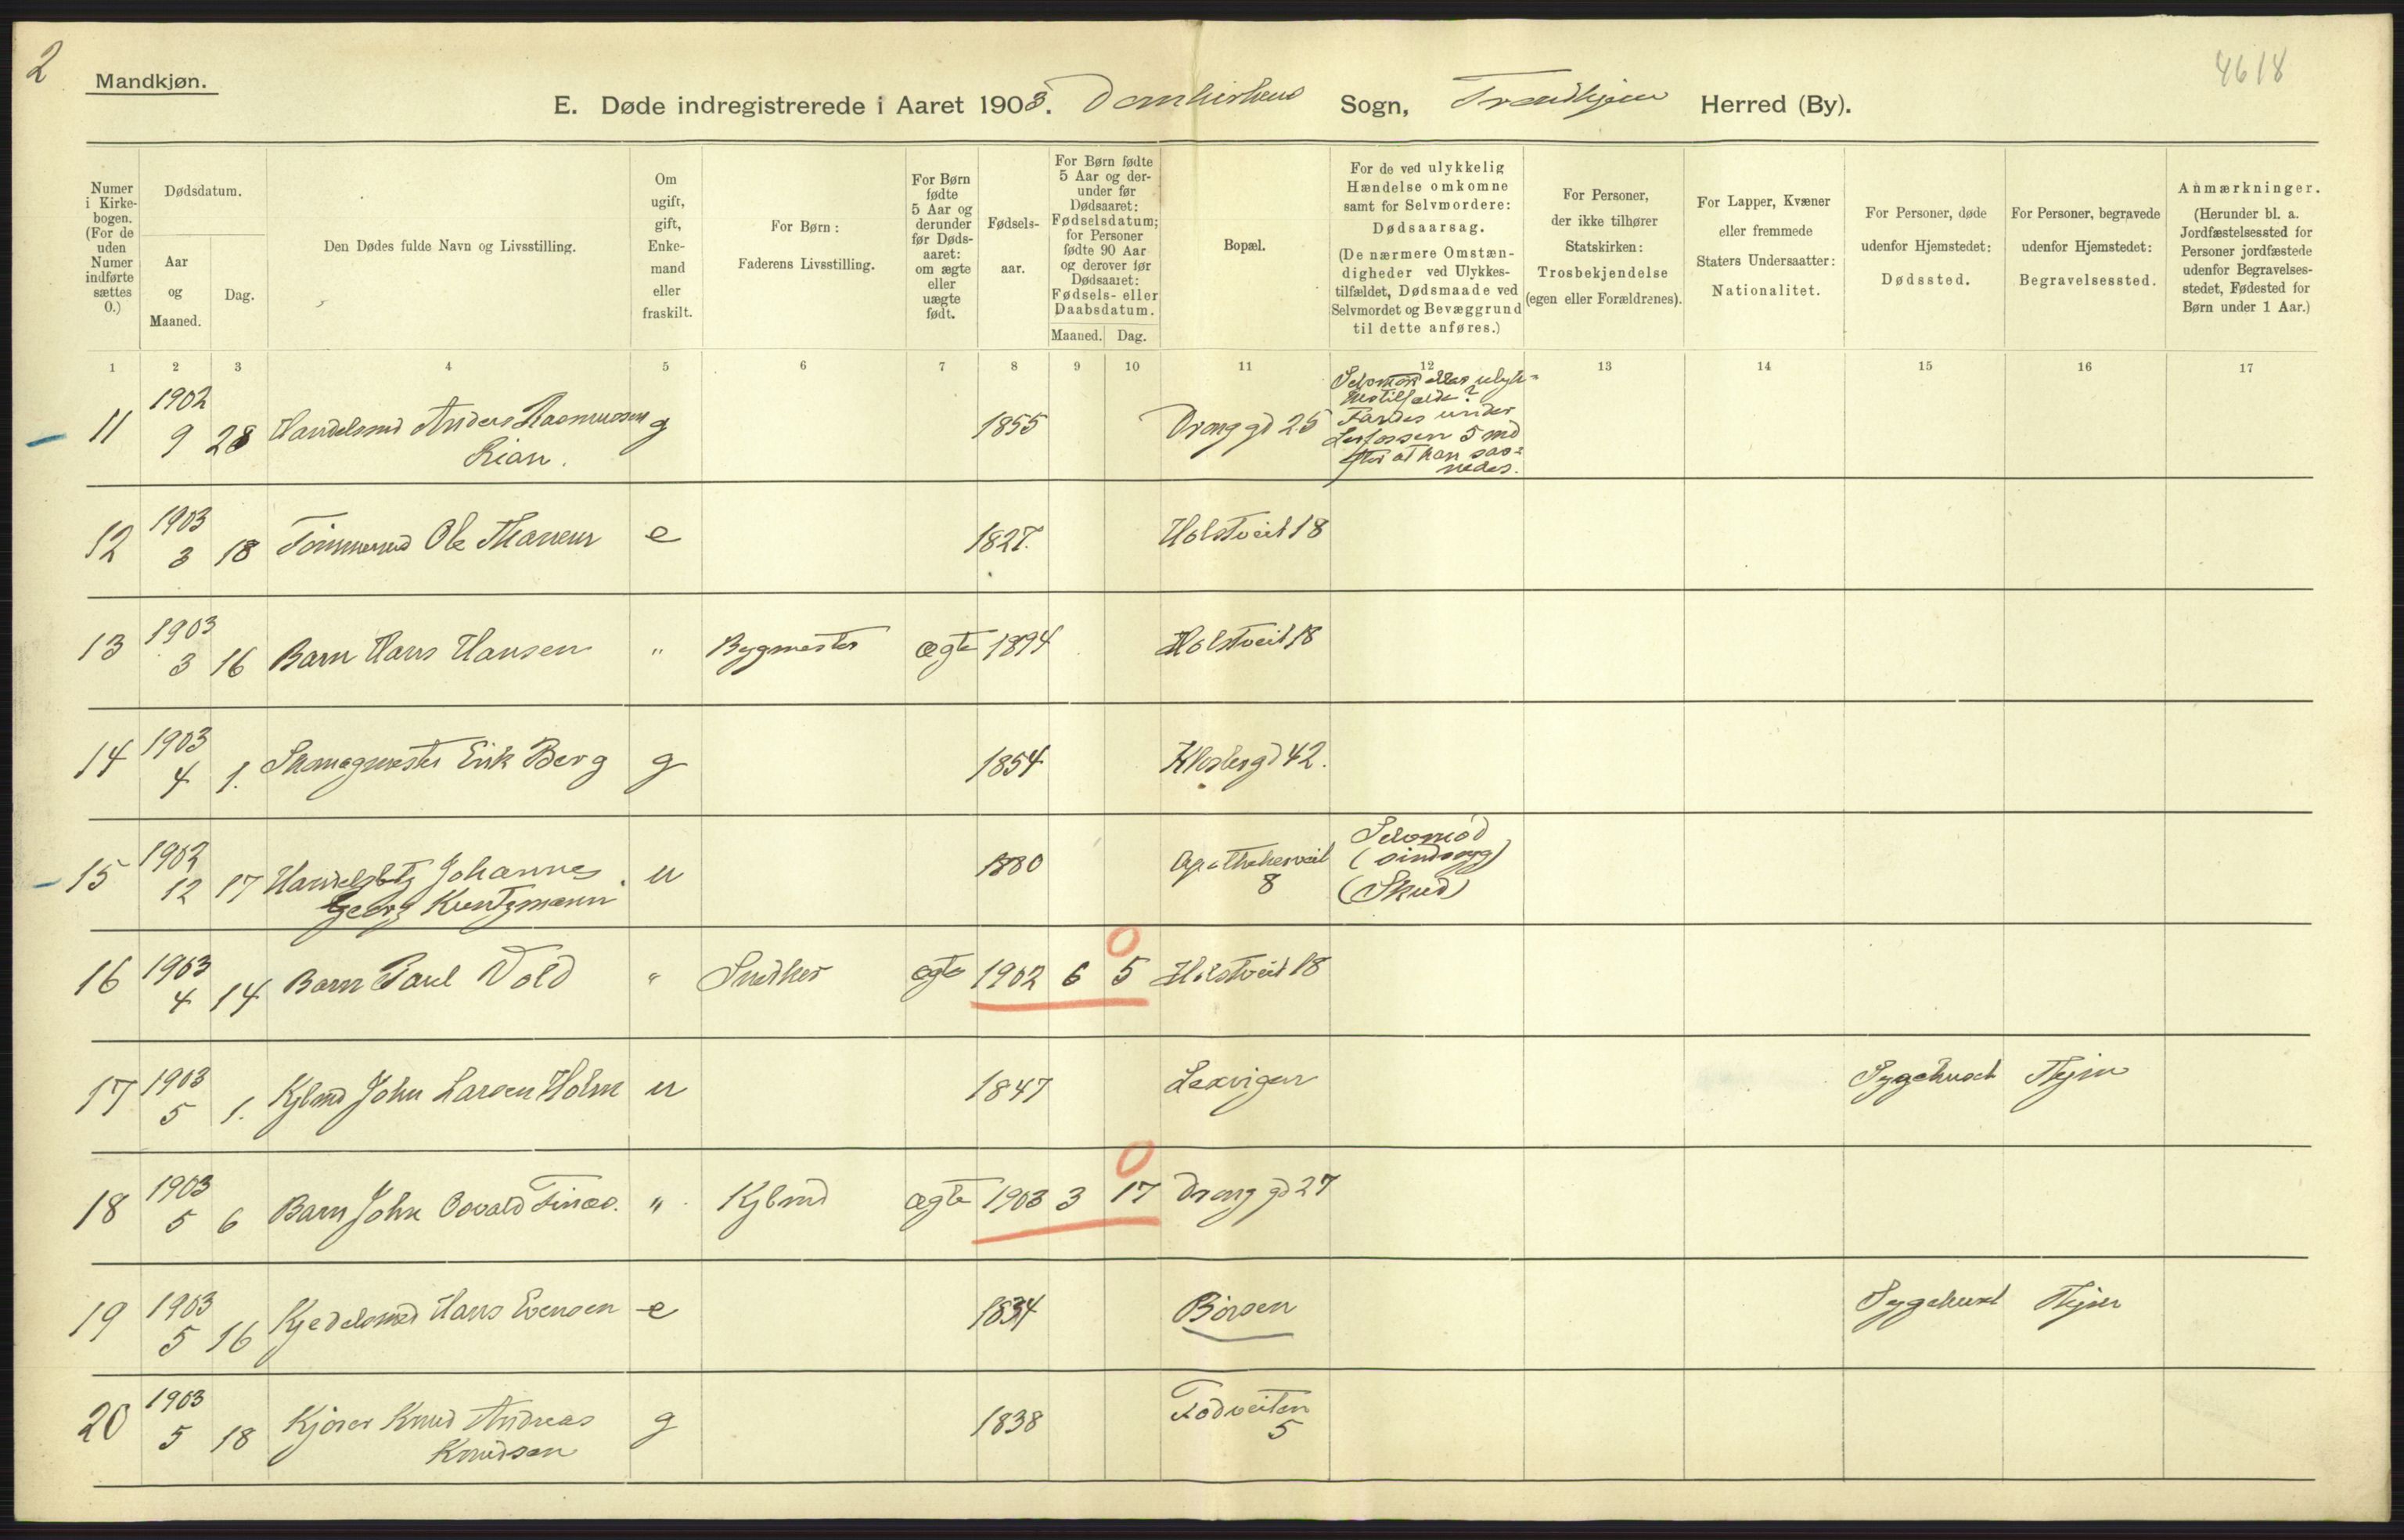 2
Mandkjøn.
4618
E. Døde indregistrerede i Aaret 1903. Domkirkens Sogn, Trondhjem Herred (By).
Numer i Kirke-bogen. (For de uden Numer indførte sættes 0.)
Dødsdatum.
Aar og Maaned.
Dag.
Den Dødes fulde Navn og Livsstilling.
Om ugift, gift, Enke-mand eller fraskilt.
For Børn: Faderens Livsstilling.
For Børn fødte 5 Aar og derunder før Døds-aaret: om ægte eller uægte født.
Fødsels-aar.
For Børn fødte 5 Aar og der-under før Dødsaaret: Fødselsdatum; for Personer fødte 90 Aar og derover før Dødsaaret: Fødsels- eller Daabsdatum.
Maaned. Dag.
Bopæl.
For de ved ulykkelig Hændelse omkomne samt for Selvmordere: Dødsaarsag. (De nærmere Omstæn-digheder ved Ulykkes-tilfældet, Dødsmaade ved Selvmordet og Bevæggrund til dette anføres.)
For Personer, der ikke tilhører Statskirken: Trosbekjendelse (egen eller Forældrenes).
For Lapper, Kvæner eller fremmede Staters Undersaatter: Nationalitet.
For Personer, døde udenfor Hjemstedet: Dødssted.
For Personer, begravede udenfor Hjemstedet: Begravelsessted.
Anmærkninger. (Herunder bl. a. Jordfæstelsessted for Personer jordfæstede udenfor Begravelses-stedet, Fødested for Børn under 1 Aar.)
1 2 3 4 5 6 7 8 9 10 11 12 13 14 15 16 17
11 1902 9 28 Handelsmd Anders Rasmussen Rian. g 1855 Drong gd 25 Selvmord eller ulyk-
kestilfælde?
Fandes under
Lerfossen 5 md
efter at han sav-
nedes.
12 1903 3 18 Tømmermd Ole Hansen e 1827. Holstveit 18
13 1903 3 16 Barn Hans Hansen " Bygmester ægte 1894 Holstveit 18
14 1903 4 1. Skomagmester Erik Berg g 1854 Klosterg d 42.
15 1902 12 17 Handelsbtj Johannes
Georg Kuntzmann u 1880 Apothekerveit
8 Selvmord
(sindssyg)
(Skud)
16 1903 4 14 Barn Paul Vold " Snedker ægte 1902 6 5 0 Holstveit 18
17 1903 5 1. Kjbmd John Larsen Holm u 1847 Lexvigen Sygehuset Thjem
18 1903 5 6 Barn John Osvald Finæs. " Kjbmd ægte 1903 3 17 0 Drong gd 27
19 1903 5 16 Kjedelsmed Hans Evensen e 1834 Børsen Sygehuset Thjem
20 1903 5 18 Kjører Knud Andreas
Knudsen g 1838 Fodveiten
5